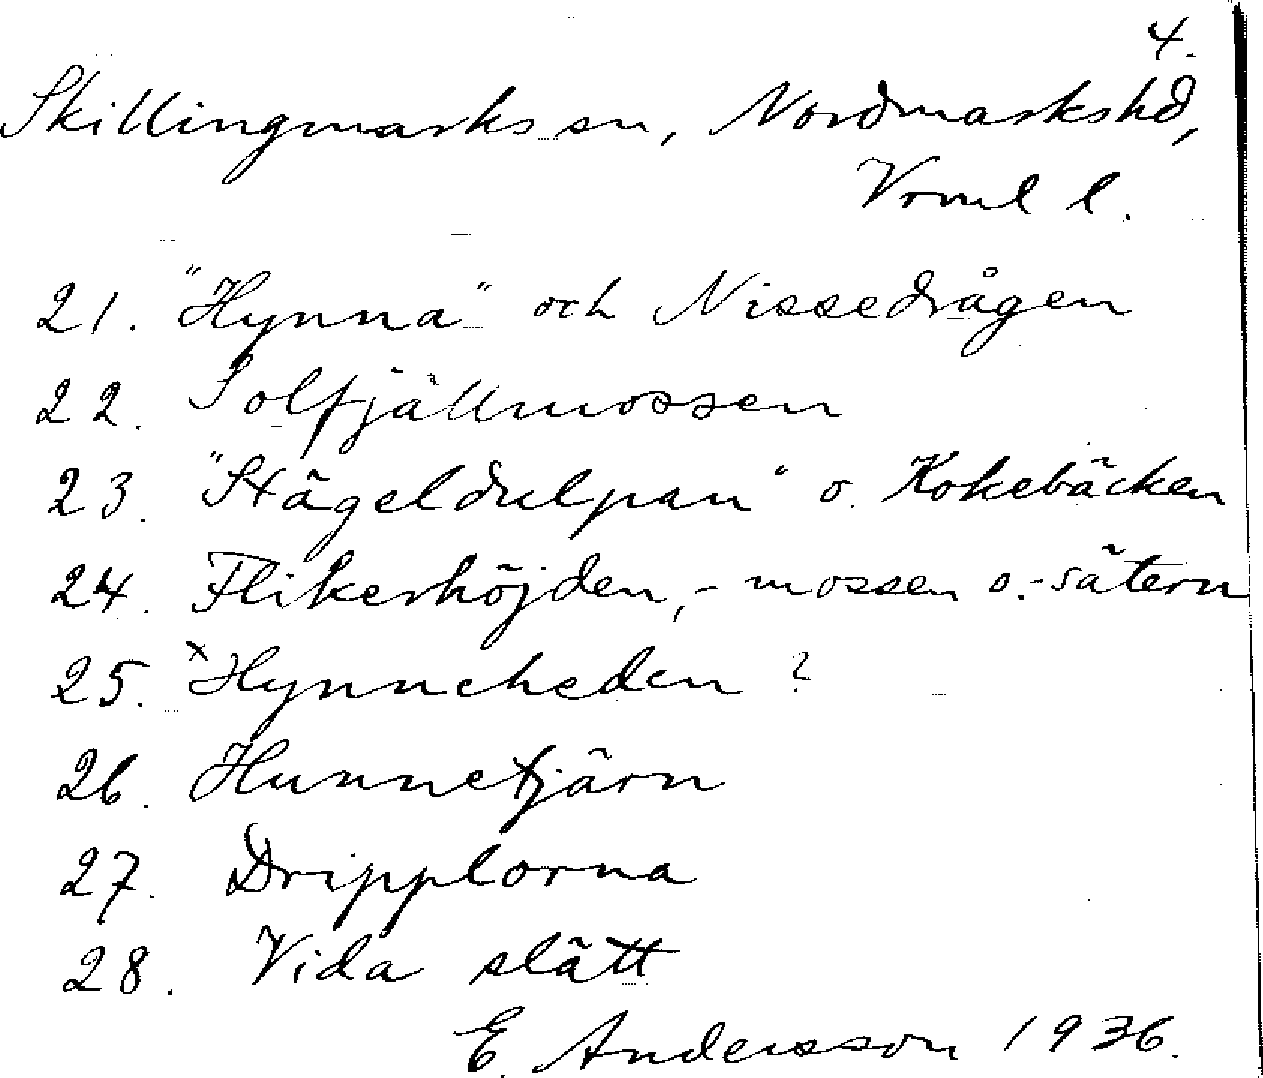 4.
Skillingmarks sn, Nordmarkshd,
Vrml l.
21. "Hynna" och Nissedrågen
22. Solfjällmossen
23. "Stägeldulpan" o. Kokebäcken
24. Flikerhöjden, -mossen o. -sätern
25. ˣHynneheden ?
26. Hunnetjärn
27. Dripplorna
28. Vida slätt
E. Andersson 1936.